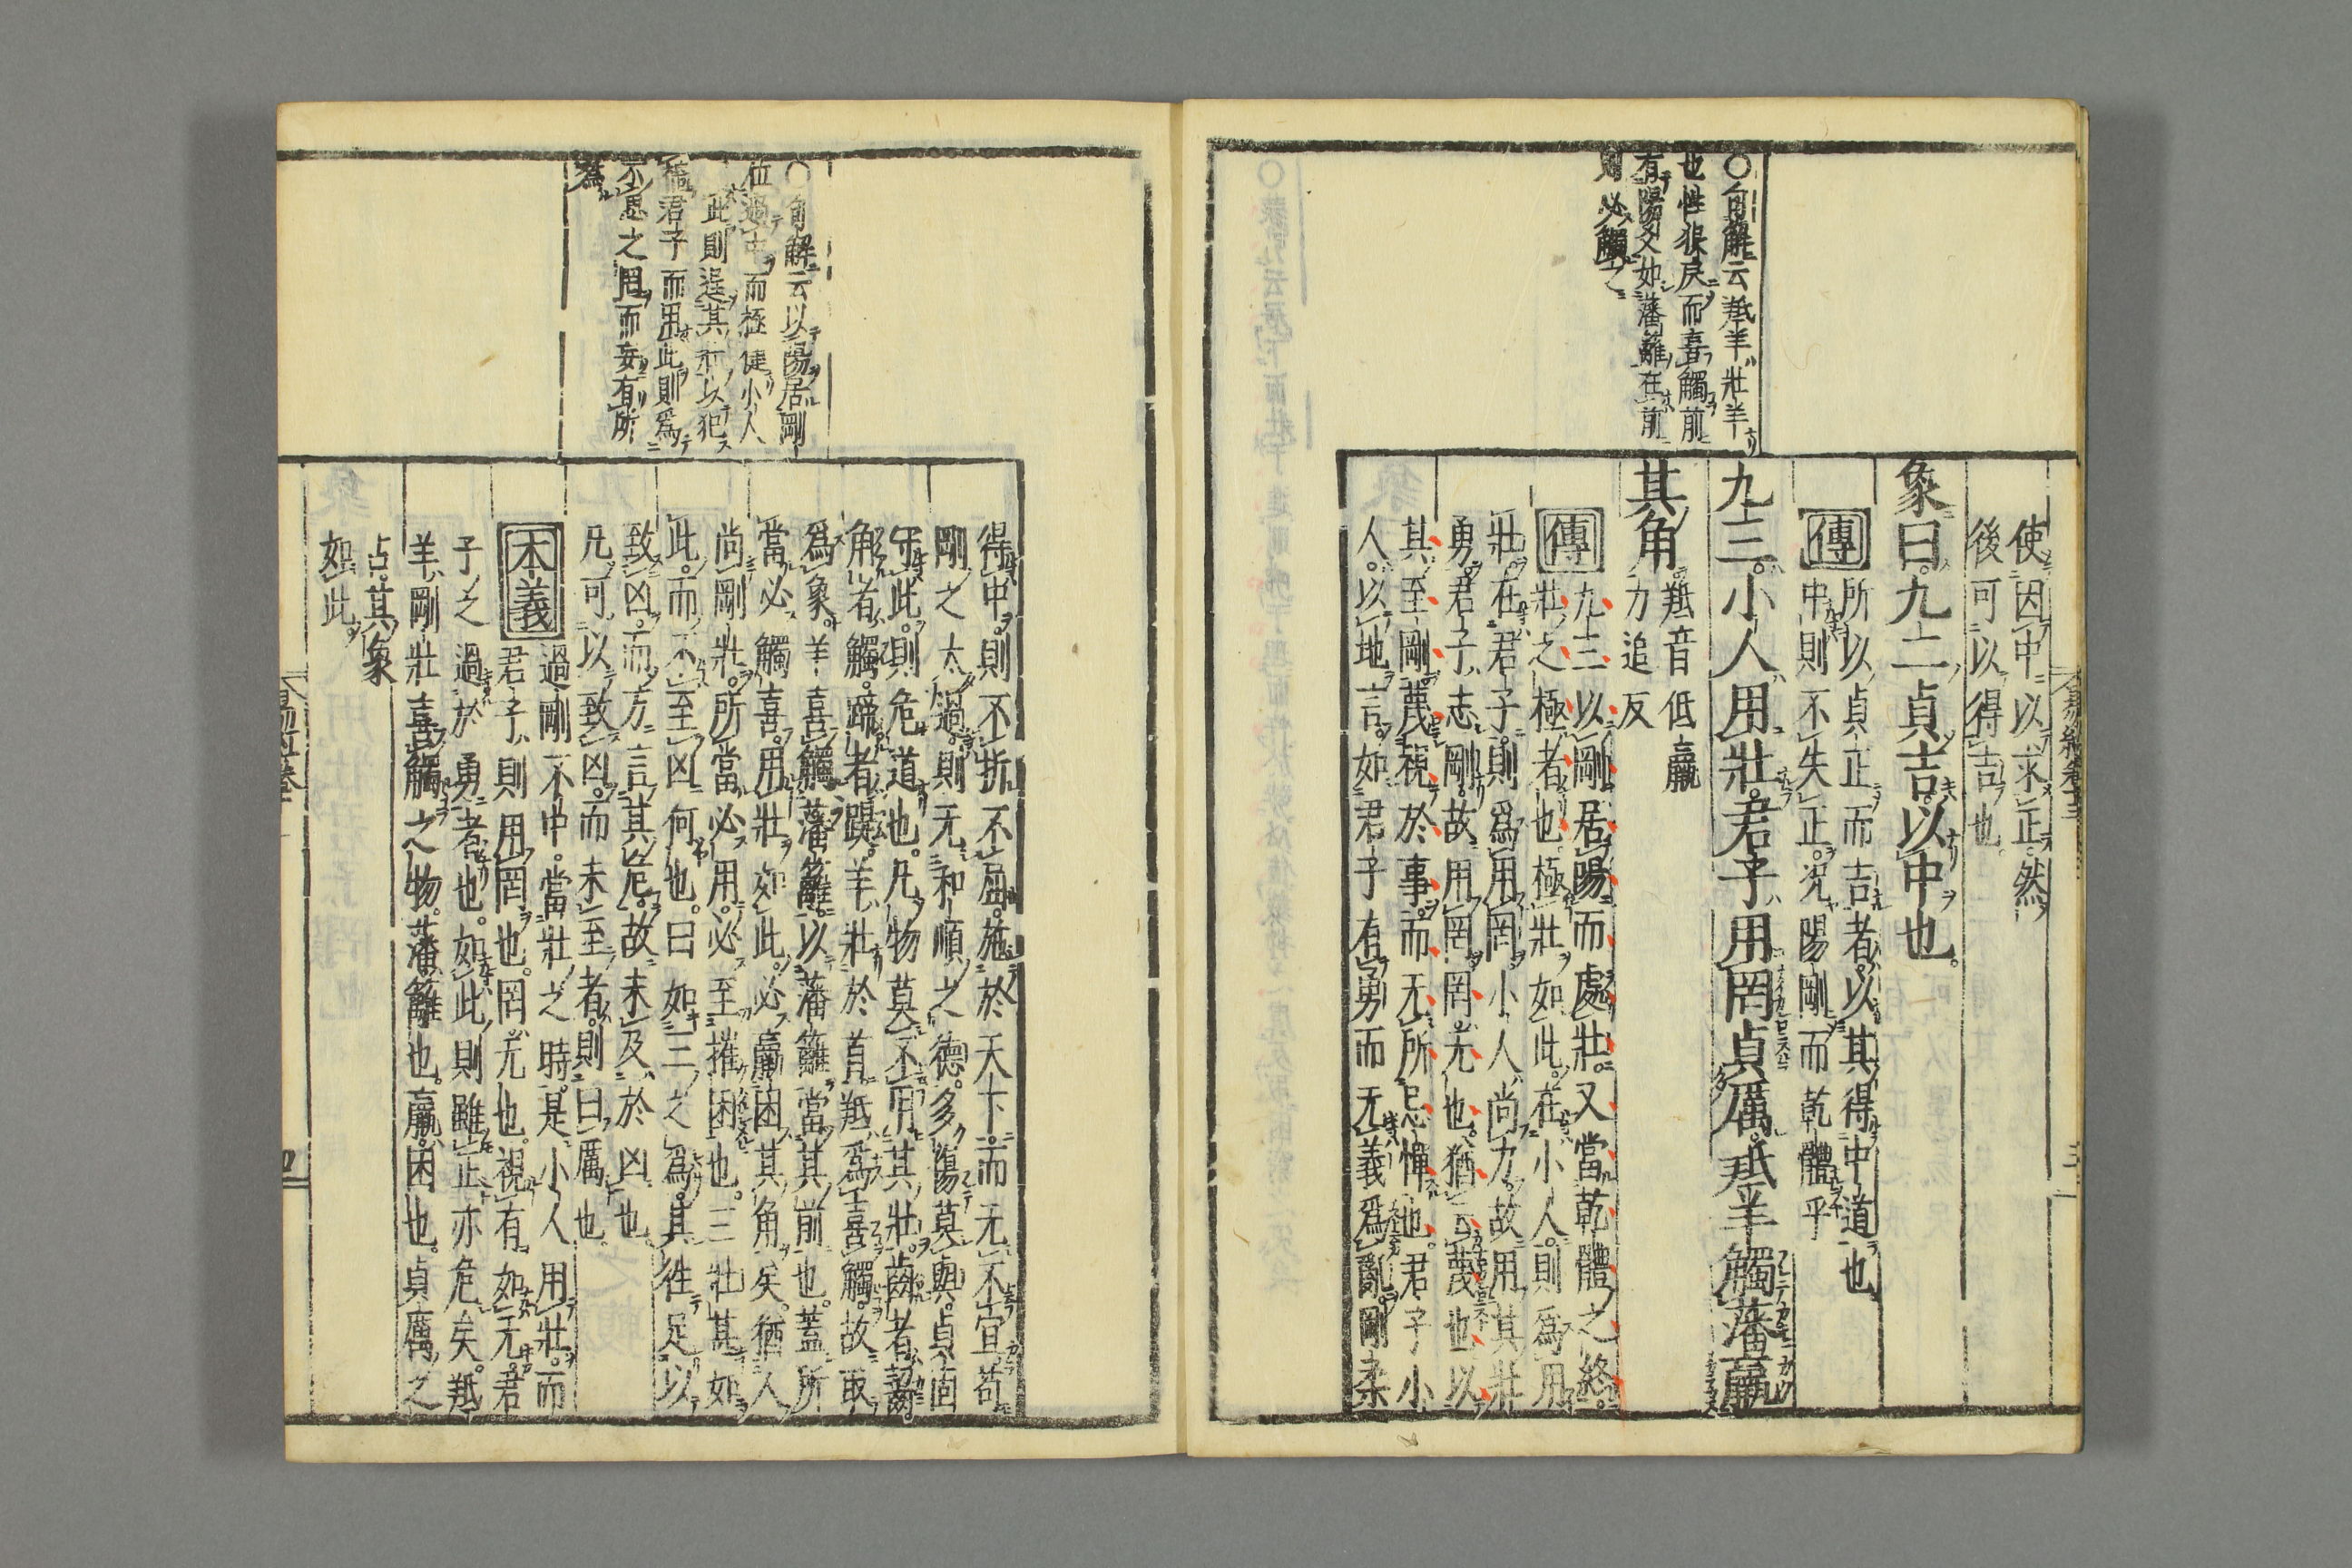 〇句解云羝羊壯羊
也性狠戾而喜觸前
有陽爻如藩籬在前
則必觸之
使因中以求正然
後可以得吉也
象曰九二貞吉以中也
傳所以貞正而吉者以其得中道也
中則不失正況陽剛而乾體乎
九三小人用壯君子用罔貞厲羝羊觸藩羸
其角羝音低羸
力追反
傳九三以剛居陽而處壯又當乾體之終
壯之極者也極壯如此在小人則爲用
壯在君子則爲用罔小人尚力故用其壯
勇君子志剛故用罔罔无也猶云蔑也以
其至剛蔑視於事而无所忌憚也君子小
人以地言如君子有勇而无義爲亂剛柔
〇句解云以陽居剛
位過中而極健小人
此則逞其壯以犯
君子而用此則爲
不思之罔而妄有所
爲
得中則不折不屈施於天下而无不宜苟
剛之太過則无和順之德多傷莫與貞固
守此則危道也凡物莫不用其壯齒者齧
角者觸蹄者踶羊壯於首羝爲喜觸故取
爲象羊喜觸藩籬以藩籬當其前也蓋所
當必觸喜用壯如此必羸困其角矣猶人
尚剛壯所當必用必至摧困也三壯甚如
此而不至凶何也曰如三之爲其往足以
致凶而方言其危故未及於凶也
凡可以致凶而未至者則曰厲也
本義過剛不中當壯之時是小人用壯而
君子則用罔也罔无也視有如无君
子之過於勇者也如此則雖正亦危矣羝
羊剛壯喜觸之物藩籬也羸困也貞厲之
占其象
如此
易經卷十三
三
四